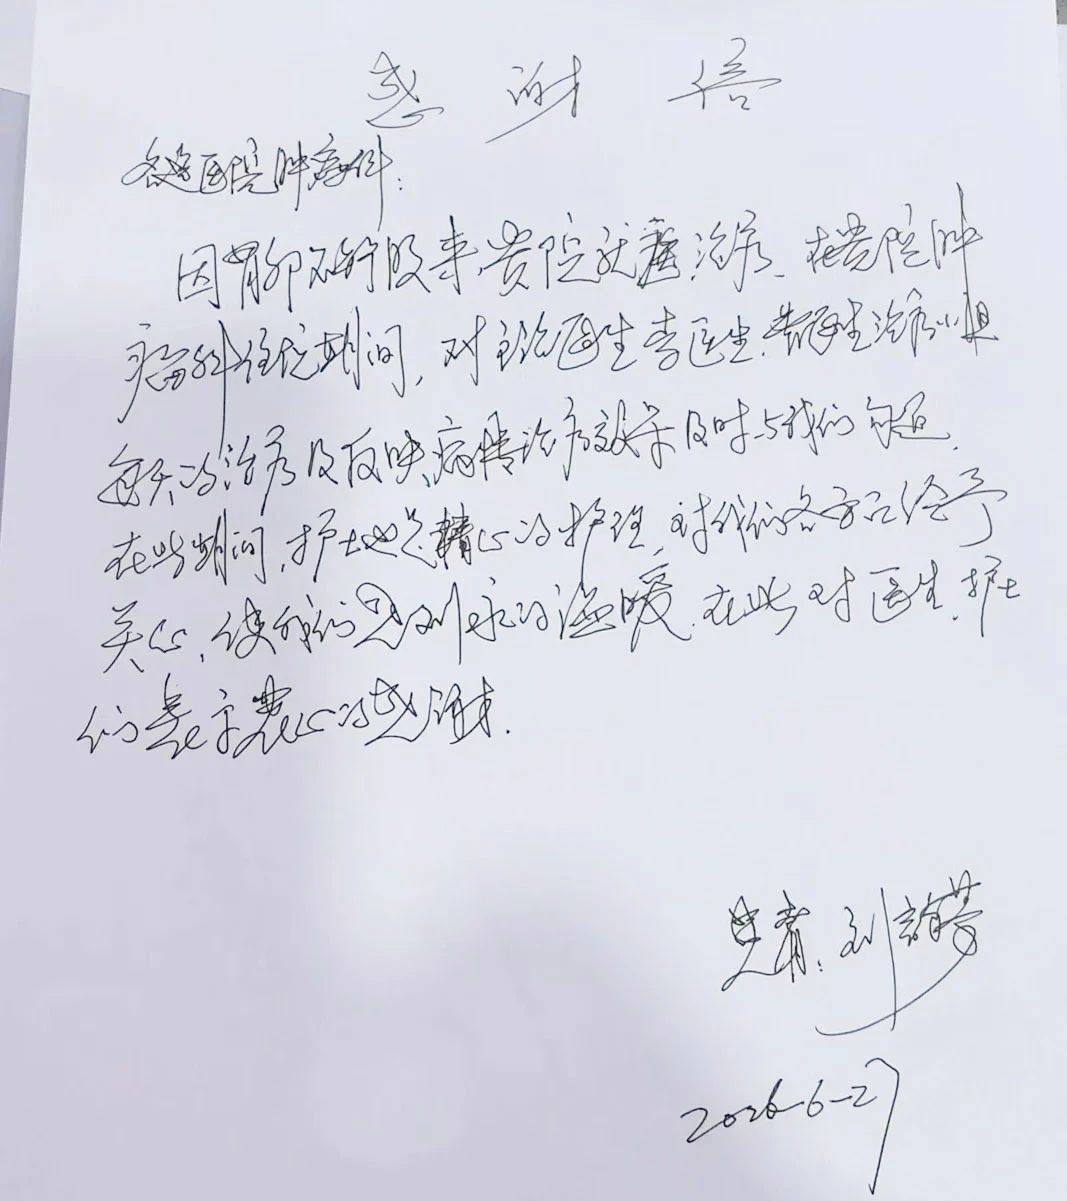 感谢信
医院肿瘤科:
因胃部不舒服来贵院就医治疗、在贵院肿
瘤科住院期间,对主治医生李医生、医生治疗小组
每天的治疗及反映病情治疗效果及时与我们沟通.
在此期间,护士也是精心的护理,对我们各方面给予
关心,使我们感到家的温暖.在此对医生、护士
们表示衷心的感谢.
患者:刘
2026-6-27